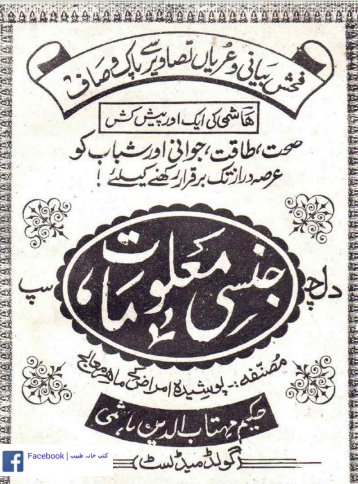 فحش بیانی و عریاں تصاویر سے پاک و صاف
ہاشمی کی ایک اور پیش کش
صحت، طاقت، جوانی اور شباب کو
عرصہ دراز تک برقرار رکھنے کیلئے!
دلچسپ
جنسی معلومات
مصنفہ:- پوشیدہ امراض کے ماہر معالج
حکیم مہتاب الدین ہاشمی
(گولڈ میڈلسٹ)
Facebook | کتب خانہ طبیب